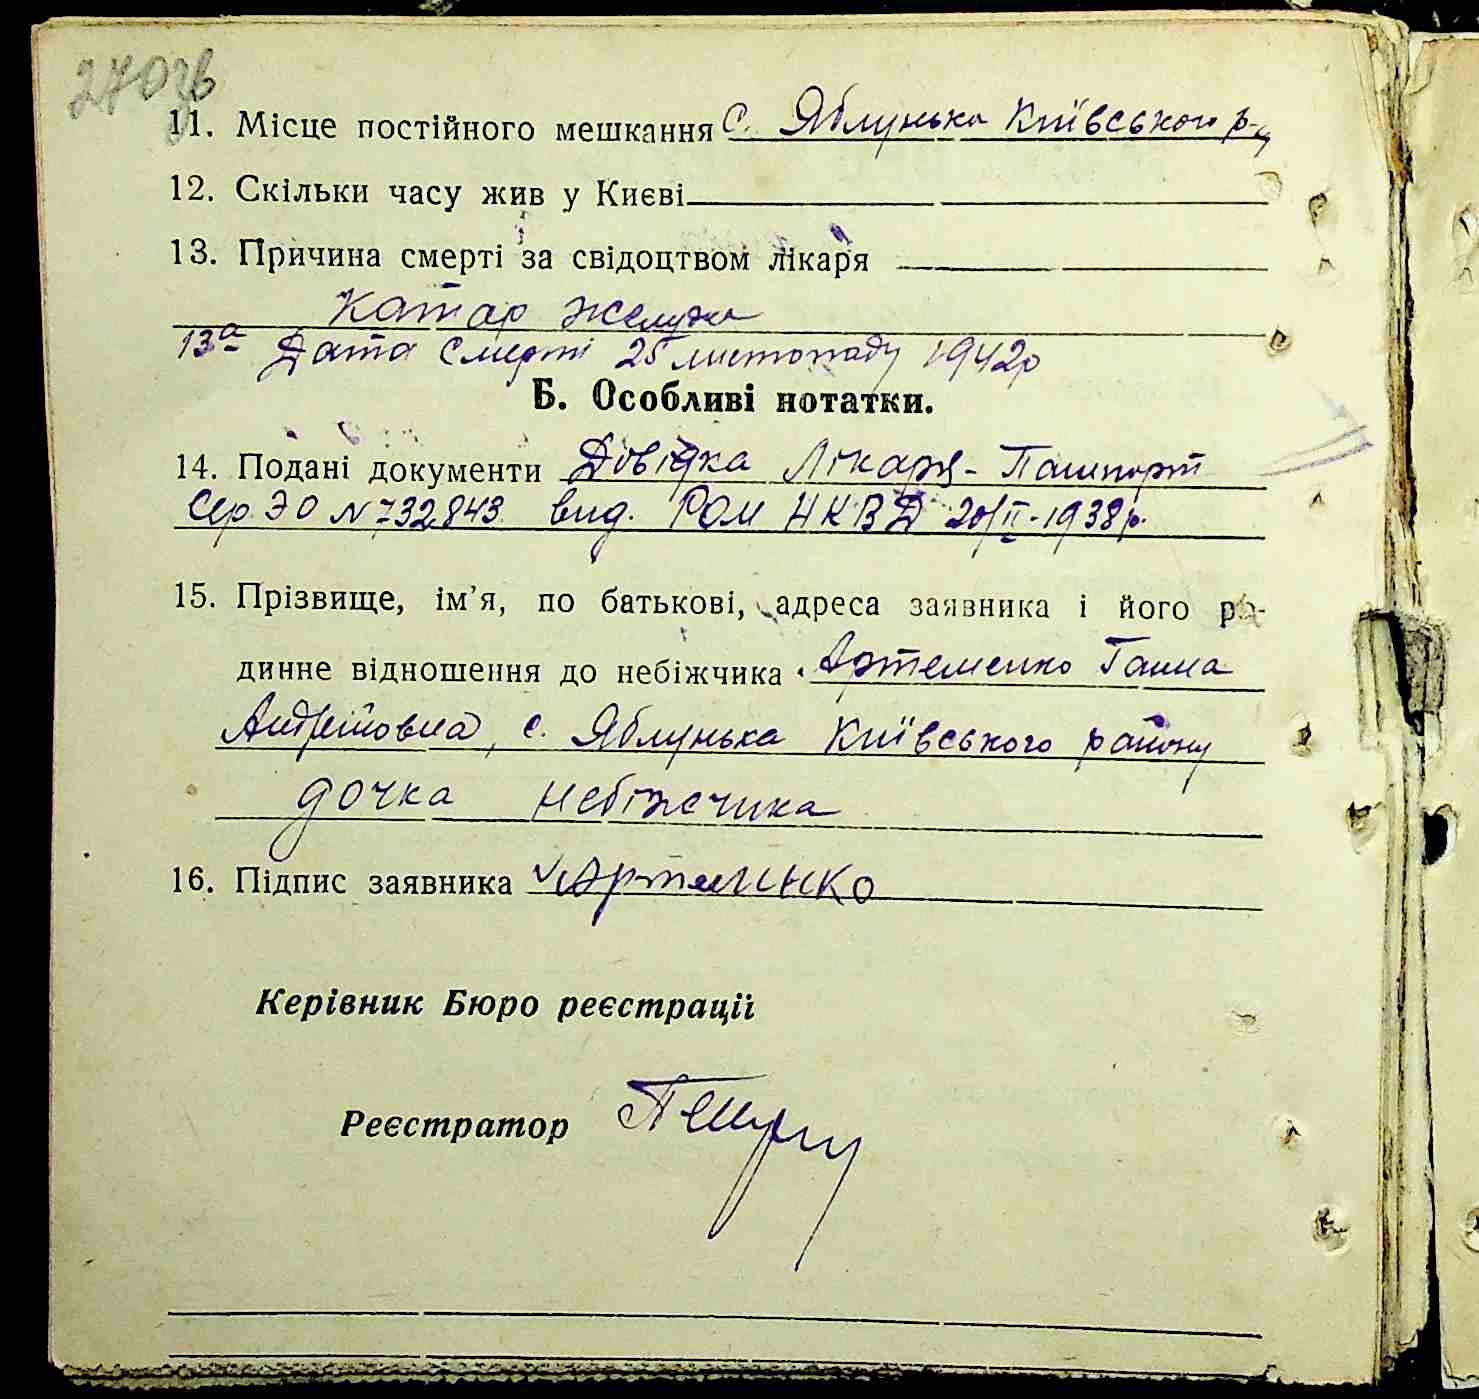 270зв
11. Місце постійного мешкання с. Яблунька Київського р-ну
12. Скільки часу жив у Києві
13. Причина смерті за свідоцтвом лікаря
Катар желудка
13а Дата смерті 25 листопаду 1942р
Б. Особливі нотатки.
14. Подані документи Довідка Лікаря - Пашпорт
Сер. ЭО № 732843 вид. РОМ НКВД 20/II-1938р.
15. Прізвище, ім’я, по батькові, адреса заявника і його ро-
динне відношення до небіжчика Артеменко Ганна
Андріївна, с. Яблунька Київського району
дочка небіжчика
16. Підпис заявника Артеминко
Керівник Бюро реєстрації
Реєстратор